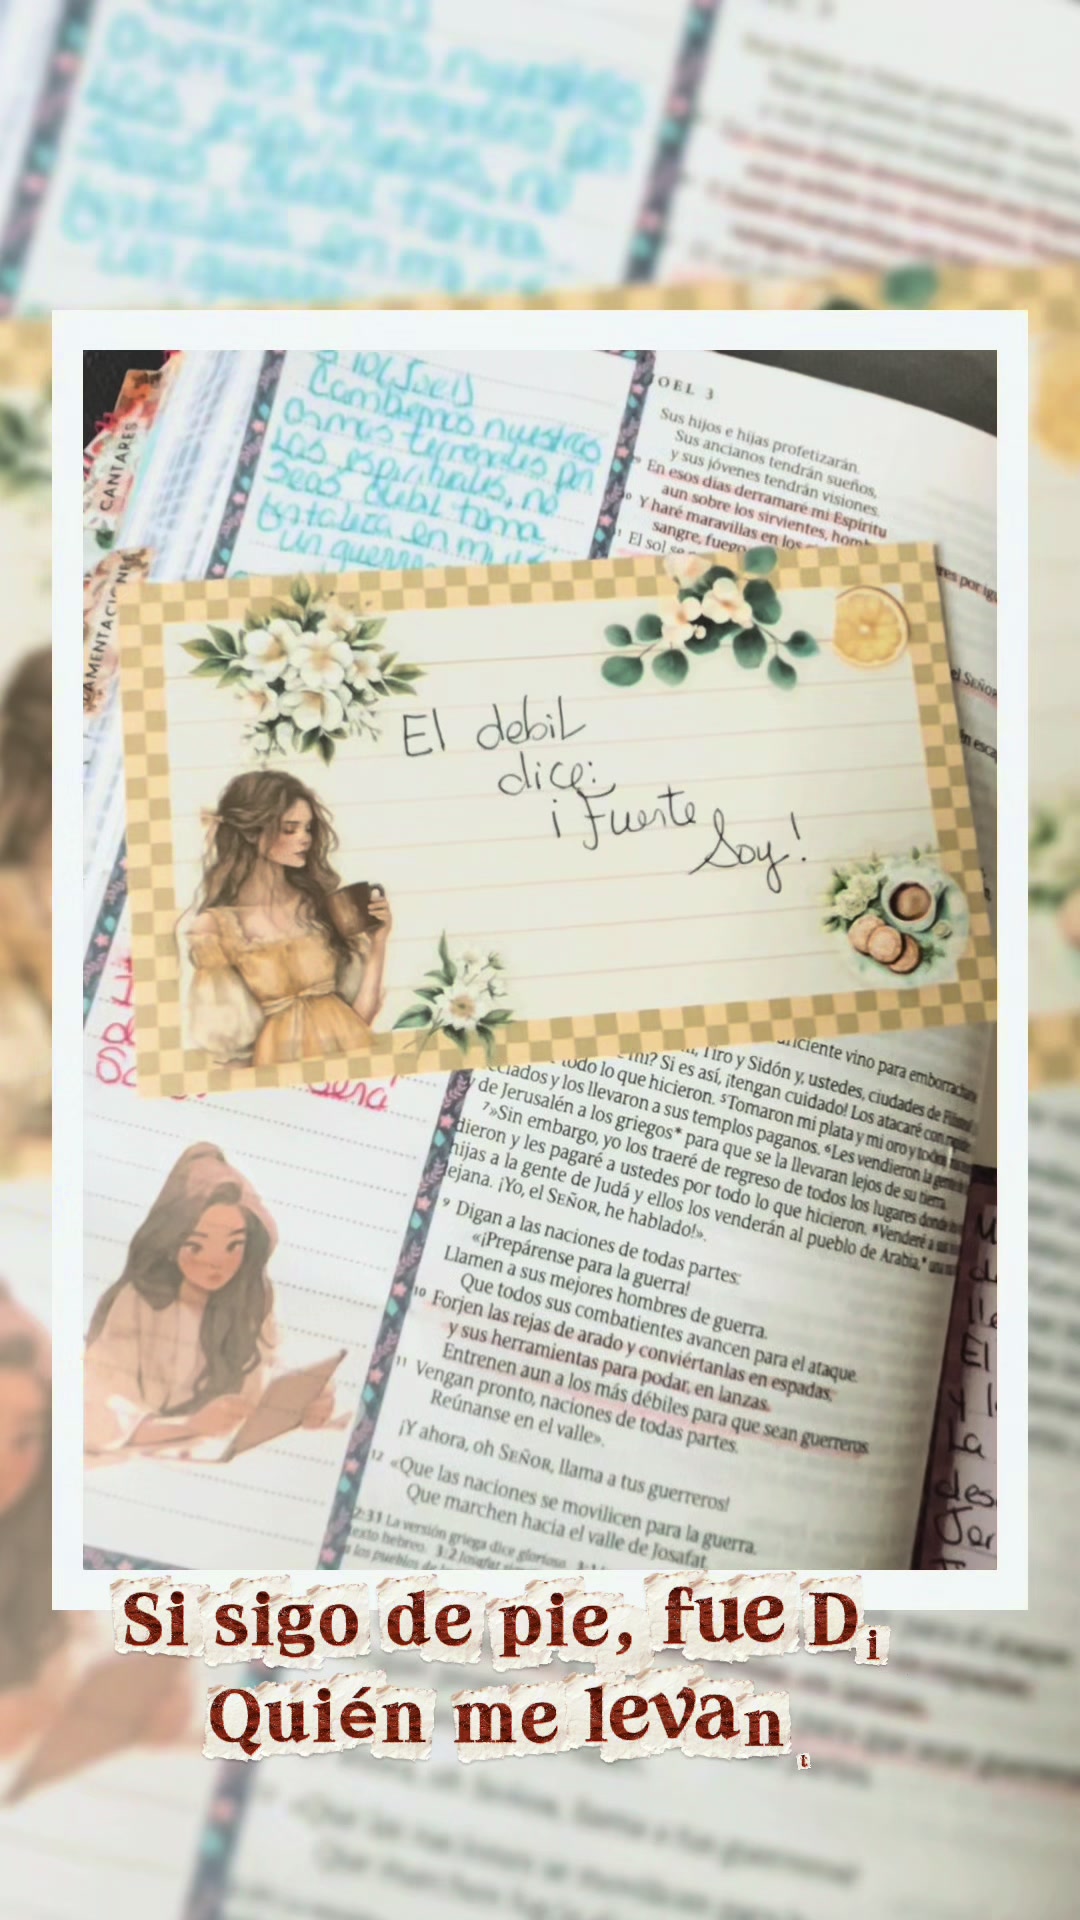 CANTARES
8 10 (Joel)
Cambiemos nuestras
armas terrenales por
las espirituales, no
seas débil toma
fortaleza en
un guerre
OEL 3
Sus hijos e hijas profetizarán.
Sus ancianos tendrán sueños,
y sus jóvenes tendrán visiones.
En esos días derramaré mi Espíritu
aun sobre los sirvientes, homb
Y haré maravillas en los
sangre, fuego
El sol se
AMENTACIONE
El debil
dice:
¡Fuerte
Soy!
Tiro y Sidón y, ustedes, ciudades de Filistea
mí? Si es así, ¡tengan cuidado! Los atacaré con
todo lo que hicieron. ⁵Tomaron mi plata y mi oro y todos
ciados y los llevaron a sus templos paganos. ⁶Les vendieron la gente
y de Jerusalén a los griegos* para que se la llevaran lejos de su tierra.
⁷»Sin embargo, yo los traeré de regreso de todos los lugares donde
dieron y les pagaré a ustedes por todo lo que hicieron. ⁸Venderé a sus
hijas a la gente de Judá y ellos los venderán al pueblo de Arabia,* una
ejana. ¡Yo, el SEÑOR, he hablado!».
⁹ Digan a las naciones de todas partes:
«¡Prepárense para la guerra!
Llamen a sus mejores hombres de guerra.
Que todos sus combatientes avancen para el ataque.
¹⁰ Forjen las rejas de arado y conviértanlas en espadas,
y sus herramientas para podar, en lanzas.
Entrenen aun a los más débiles para que sean guerreros.
¹¹ Vengan pronto, naciones de todas partes.
Reúnanse en el valle».
¡Y ahora, oh SEÑOR, llama a tus guerreros!
¹² «Que las naciones se movilicen para la guerra.
Que marchen hacia el valle de Josafat.
2:31 La versión griega dice glorioso.
texto hebreo. 3:2 Josafat
Si sigo de pie, fue Di
Quién me levant